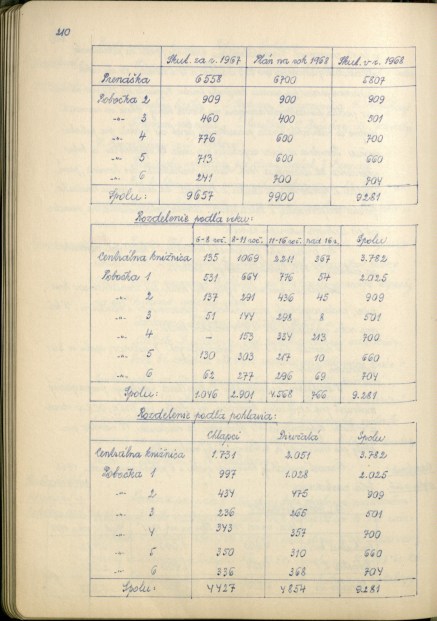 210
Skut. za r. 1967 Plán na rok 1968 Skut. v r. 1968
Prenáška 6558 6700 5807
Pobočka 2 909 900 909
-„- 3 460 400 501
-„- 4 776 600 700
-„- 5 713 600 660
-„- 6 241 700 704
Spolu: 9657 9900 9281
Rozdelenie podľa veku:
6-8 roč. 9-11 roč. 11-16 roč. nad 16 r. Spolu
Centrálna knižnica 135 1069 2211 367 3.782
Pobočka 1 531 664 776 54 2.025
-„- 2 137 291 436 45 909
-„- 3 51 144 298 8 501
-„- 4 - 153 334 213 700
-„- 5 130 303 217 10 660
-„- 6 62 277 296 69 704
Spolu: 1.046 2.901 4.568 766 9.281
Rozdelenie podľa pohlavia:
Chlapci Dievčatá Spolu
Centrálna knižnica 1.731 2.051 3.782
Pobočka 1 997 1.028 2.025
-„- 2 434 475 909
-„- 3 236 265 501
-„- 4 343 357 700
-„- 5 350 310 660
-„- 6 336 368 704
Spolu: 4427 4854 9281